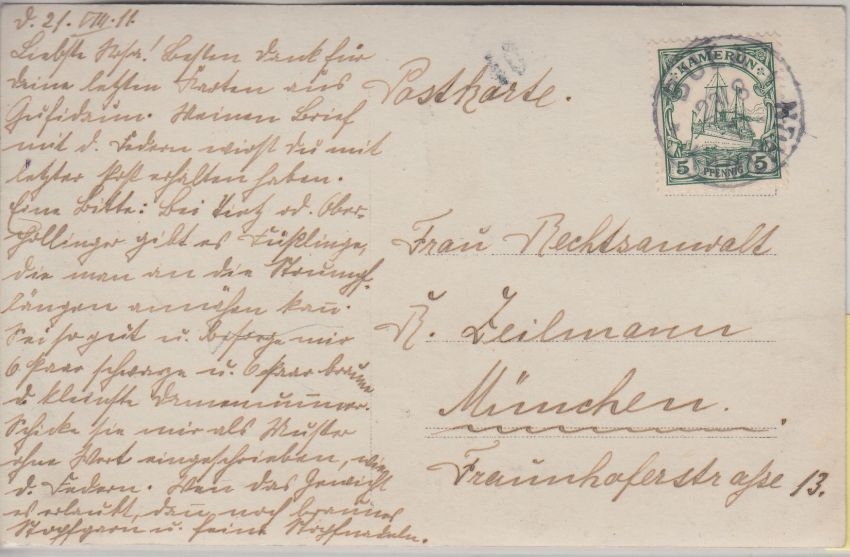 d. 21. VIII. 11.
Liebste Rosa! Besten Dank für
deine letzten Karten aus
Gufidaun. Meinen Brief
mit d. Federn wirst du mit
letzter Post erhalten haben.
Eine Bitte: Bei Tietz od. Ober-
pollinger gibt es Füßlinge,
die man an die Strumpf-
längen annähen kann.
Sei so gut u. besorge mir
6 Paar schwarze u. 6 Paar braune
d. kleinste Damennummer.
Schicke sie mir als Muster
ohne Wert eingeschrieben, wie
d. Federn. Wenn das Gewicht
es erlaubt, dann noch braunes
Stopfgarn u. feine Stopfnadeln.
Postkarte.
KAMERUN
5 PFENNIG 5
Frau Rechtsanwalt
R. Zeilmann
München.
Fraunhoferstraße 13.